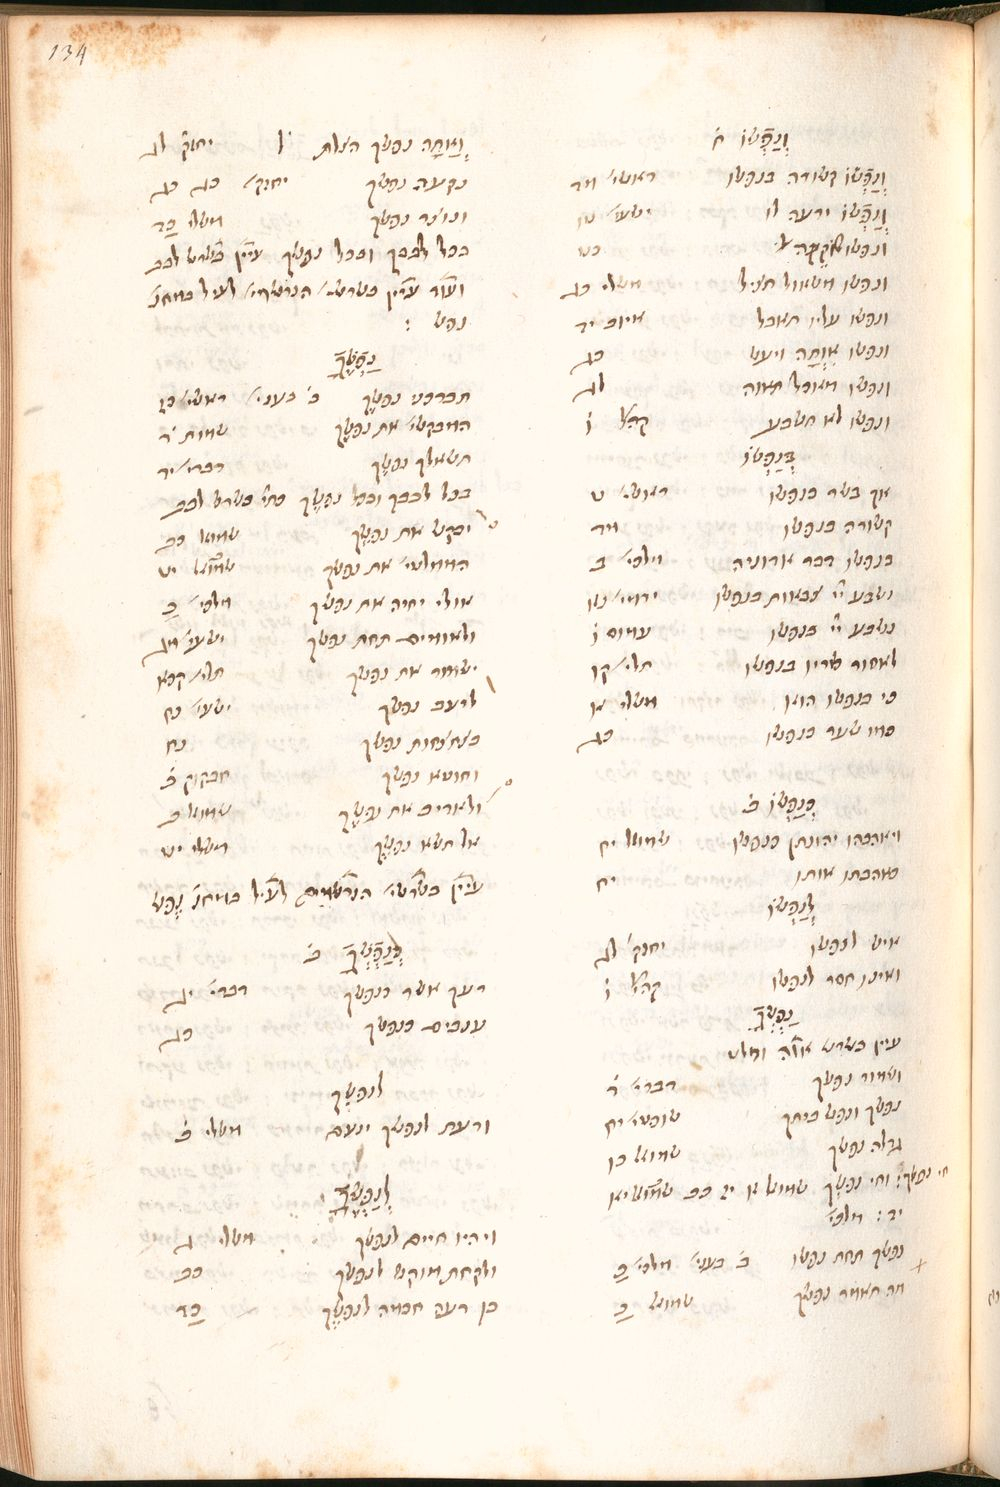 134
וְנַפְשׁוֹ ח֗
וְנַפְשׁוֹ קשורה בנפשו ראשי׳ מד
וְנַפְשׁוֹ ירעה לו ישעי׳ טו
ונפשו שֹׁקֵקָה
ונפשו משאול תציל משלי כג
ונפשו עליו תאבל איוב יד
ונפשו אִוְּתָה ויעש כג
ונפשו מאכל תאוה לג
ונפשו לא תשבע קהל׳ ו֗
בְּנַפְשׁוֹ
אך בשר בנפשו ראשי׳ ט
קשורה בנפשו מד
בנפשו דבר אדוניה מלכי׳ ב
נשבע יי׳ צבאות בנפשו ירמי׳ נא
נשבע יי׳ בנפשו עמוס ו֗
לאסור שריו בנפשו תלי׳ קה
כי בנפשו הוא משלי
כמו שער בנפשו כג
כְּנַפְשׁוֹ ב֗
ויאהבהו יהונתן כנפשו שמואל יח
באהבתו אותו יח
לְנַפְשׁוֹ
איש לנפשו יחזק׳
ואיננו חסר לנפשו קהל׳ ו֗
נַפְשְׁךָ
עיין בשרש אוה ומלט
ושמור נפשך דברי׳ ד֗
נפשך ונפש ביתך שופטי׳ יח
גדלה נפשך שמואל כו
חי נפשך : וחי נפשך שמואל א יז כה שמואל יא
יד : מלכי׳
נפשך תחת נפשו ב֗ בעני׳ מלכי׳ כ
מה תאמר נפשך שמואל כ
וְאַתָּה נפשך הצלת ו֗ יחזק׳ לג
נקעה נפשך יחזק׳ כג כג
ונוצר נפשך משלי כד
בכל לבבך ובכל נפשך עיין בשרש לבב
ועוד עיין בשרשי׳ הנרשמי׳ לעיל במחנ׳
נפש :
נַפְשֶׁךָ
תברככ נפשֶׁך ב֗ בעני׳ ראשי׳ כז
המבקשי׳ את נפשֶׁך שמות ד֗
תשאלך נפשֶׁך דברי׳ יד
בכל לבבך ובכל נפשֶׁך כתו׳ בשרש לבב
יבקש את נפשֶׁך שמוא כה
הממלטי׳ את נפשך שמואל יט
אולי יחיה את נפשֶׁך מלכי׳ כ
ולאומים תחת נפשך ישעי׳ מג
ישמור את נפשך תלי׳ קכא
לרעב נפשך ישעי׳ נח
בצחצחות נפשך נח
וחוטא נפשך חבקוק ב֗
ולאדיב את נפשֶׁך שמואל ב
אל תשא נפשֶׁך משלי יט
עיין בשרשי׳ הנרשמים לעיל במחנ׳ נפש
כְּנַפְשְׁךָ ב֗
רעך אשר כנפשך דברי׳ יג
ענבים כנפשך כג
לנפשֶׁך
ודעת לנפשך ינעם משלי ב֗
לְנַפְשֶׁךָ
ויהיו חיים לנפשך משלי ג
ולקחת מוקש לנפשך כב
כן דעה חכמה לנפשֶׁך כד